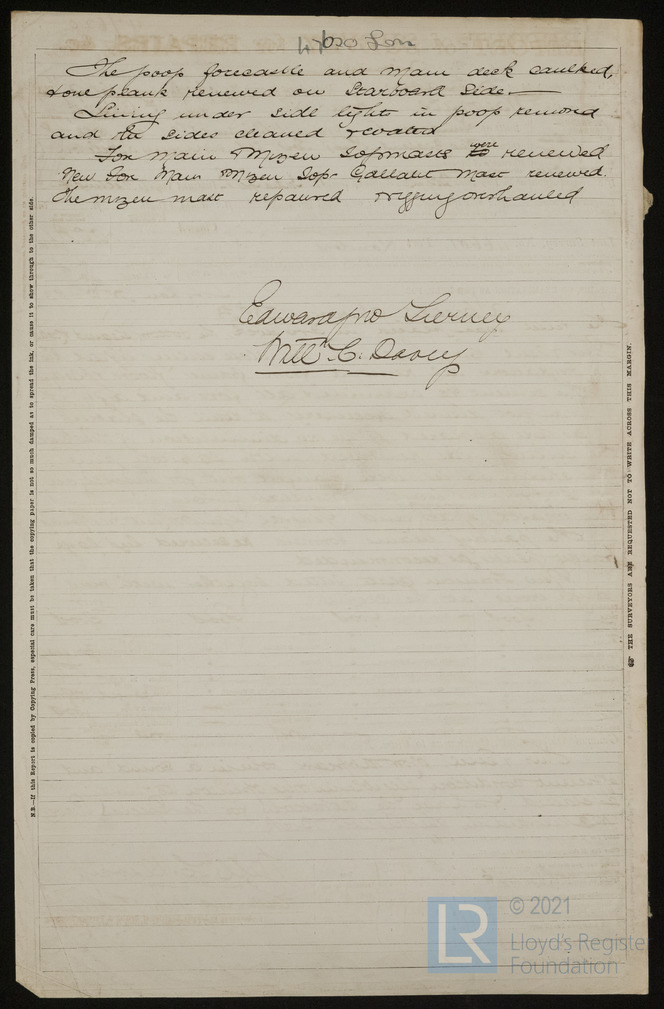 The poop forecastle and main deck caulked,
& one plank renewed on Starboard side.
Lining under side lights in poop removed
and sides cleaned & coated
For main & Mizen Topmasts were renewed
New For Main & Mizen Top Gallant Mast renewed.
The mizen mast repaired & rigging overhauled
Edward Jno Tierney
Will C. Davey
N.B.—If this Report is copied by Copying Press, especial care must be taken that the copying paper is not so much damped as to spread the ink, or cause it to show through to the other side.
THE SURVEYORS ARE REQUESTED NOT TO WRITE ACROSS THIS MARGIN.
LR
© 2021
Lloyd's Register
Foundation